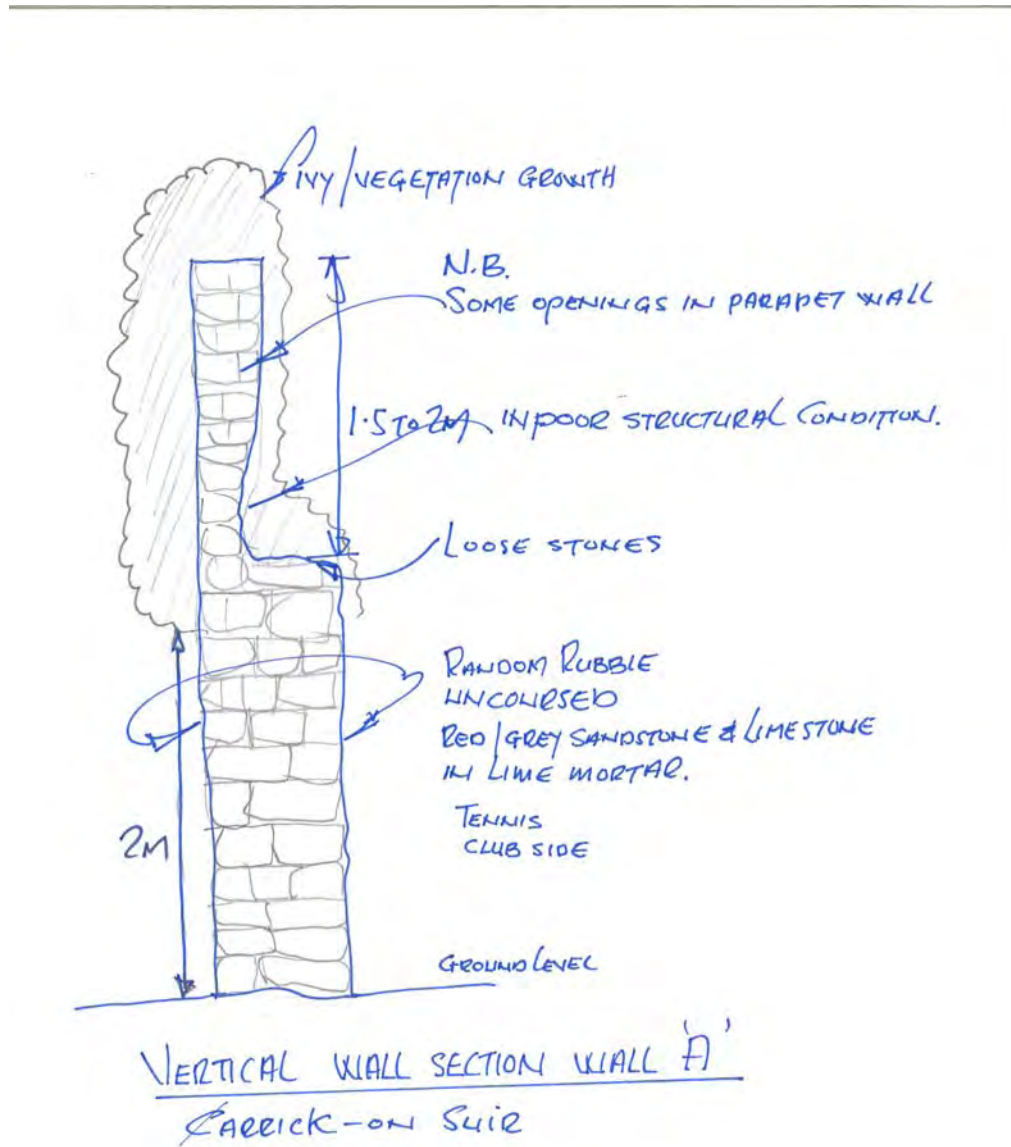 IVY/VEGETATION GROWTH
N.B.
SOME OPENINGS IN PARAPET WALL
1.5 TO 2M IN POOR STRUCTURAL CONDITION.
LOOSE STONES
RANDOM RUBBLE
UNCOURSED
RED/GREY SANDSTONE & LIMESTONE
IN LIME MORTAR.
TENNIS
CLUB SIDE
2M
GROUND LEVEL
VERTICAL WALL SECTION WALL 'A'
CARRICK-ON SUIR